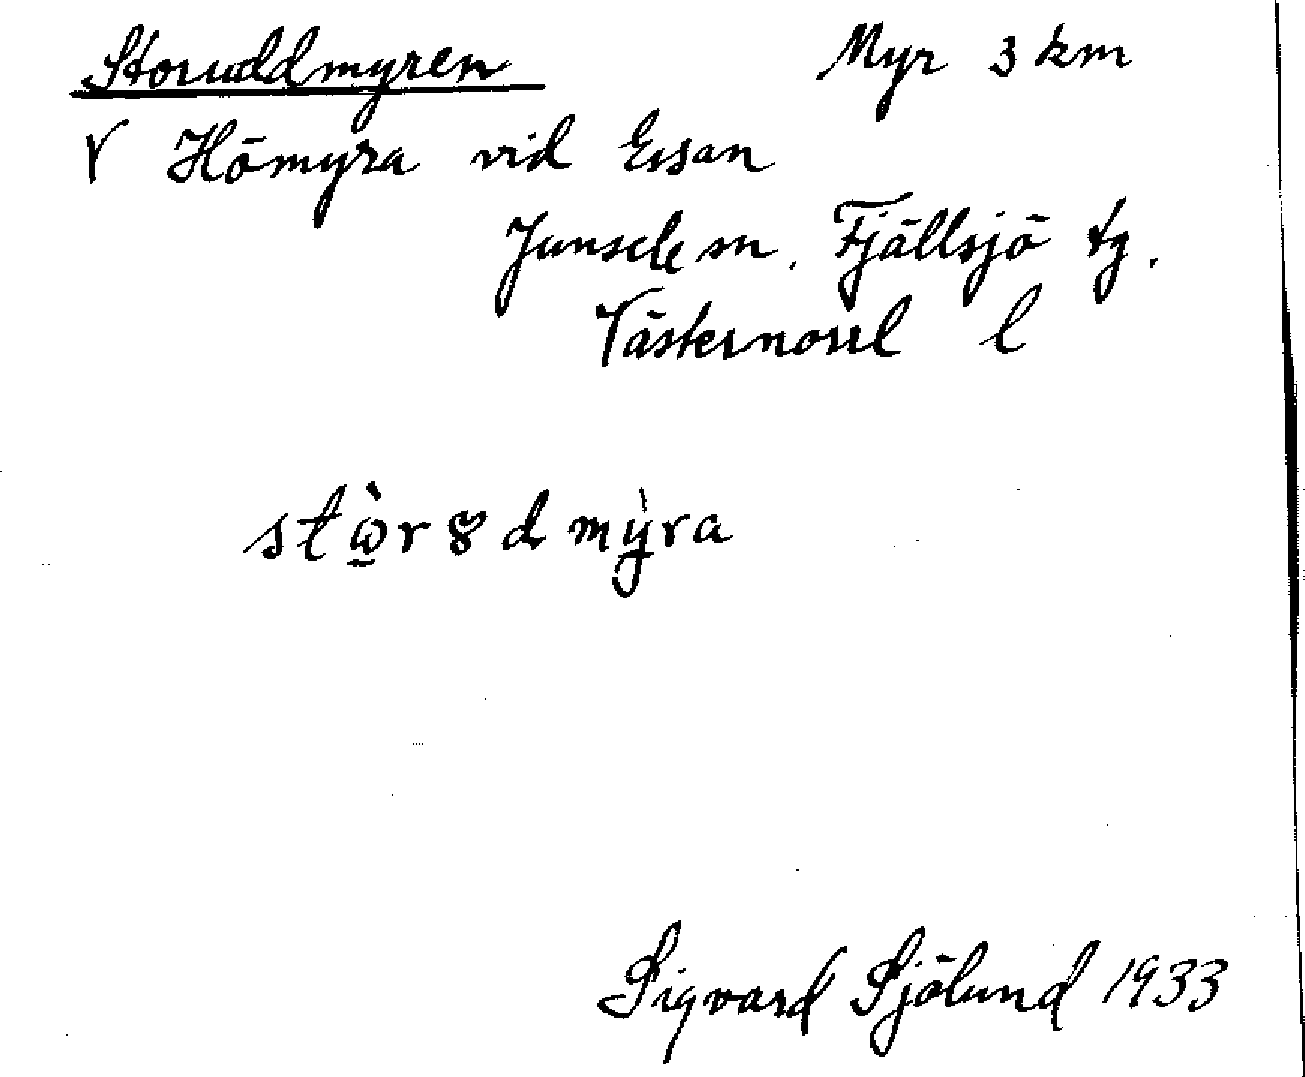 Storuddmyren Myr 3 km
V Hömyra vid Ersan
Junsele sn. Fjällsjö tg.
Västernorrl l
stὼ̲r8dmỳra
Sigvard Sjölund 1933